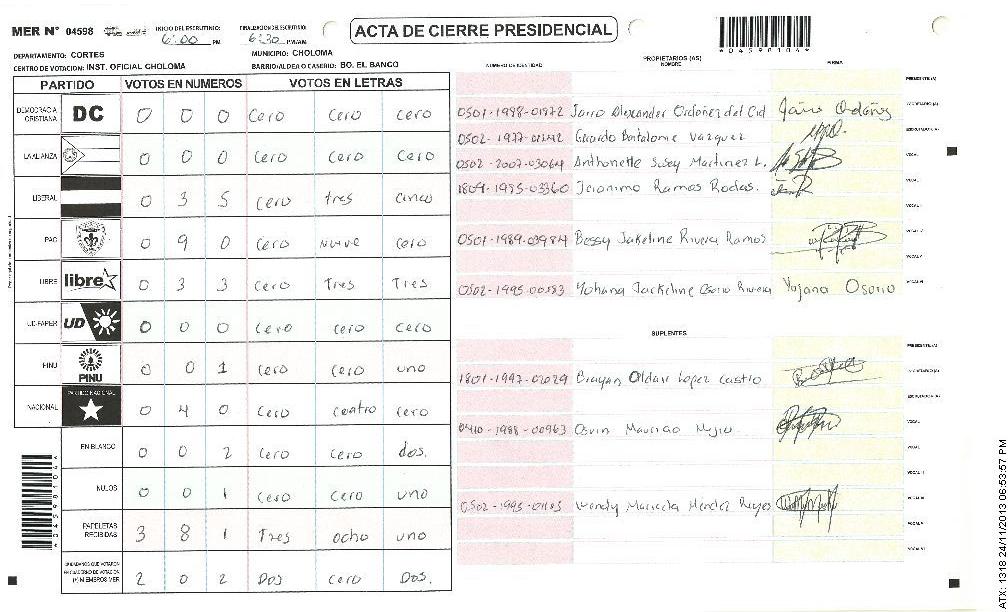 MER N° 04598 INICIO DEL ESCRUTINIO: 6:00 PM FINALIZACION DEL ESCRUTINIO: 6:30 PM/AM
ACTA DE CIERRE PRESIDENCIAL
*04598104*
DEPARTAMENTO: CORTES MUNICIPIO: CHOLOMA
CENTRO DE VOTACION: INST. OFICIAL CHOLOMA BARRIO/ALDEA O CASERIO: BO. EL BANCO
PARTIDO VOTOS EN NUMEROS VOTOS EN LETRAS
DEMOCRACIA CRISTIANA DC 0 0 0 Cero Cero cero
LA ALIANZA 0 0 0 Cero Cero Cero
LIBERAL 0 3 5 Cero tres cinco
PAC 0 9 0 Cero nueve Cero
LIBRE libre 0 3 3 Cero Tres Tres
UD-FAPER UD 0 0 0 Cero cero cero
PINU PINU 0 0 1 Cero Cero uno
NACIONAL PARTIDO NACIONAL 0 4 0 Cero cuatro cero
EN BLANCO 0 0 2 Cero Cero dos.
NULOS 0 0 1 Cero Cero uno
PAPELETAS RECIBIDAS 3 8 1 Tres ocho uno
CIUDADANOS QUE VOTARON EN CUADERNO DE VOTACION (+) MIEMBROS MER 2 0 2 Dos Cero Dos.
*04598104*
PROPIETARIOS (AS)
NUMERO DE IDENTIDAD NOMBRE FIRMA
PRESIDENTE (A)
0501-1988-01972 Jairo Alexander Ordoñes del Cid Jairo Ordoñes SECRETARIO (A)
0502-1977-01242 Gerardo Bartolome Vazquez ESCRUTADOR (A)
0502-2007-03064 Anthonette Susey Martinez L. VOCAL I
1809-1995-03360 Jeronimo Ramos Rodas. VOCAL II
VOCAL III
0501-1989-03984 Bessy Jakeline Rivera Ramos VOCAL IV
VOCAL V
0502-1995-00583 Yohana Jackeline Osorio Rivera Yojana Osorio VOCAL VI
SUPLENTES
PRESIDENTE (A)
1801-1997-02029 Brayan Oldair Lopez Castro SECRETARIO (A)
ESCRUTADOR (A)
0410-1988-00963 Osvin Mauricio Mejia VOCAL I
VOCAL II
VOCAL III
0502-1995-01183 Wendy Maricela Mendez Reyes VOCAL IV
VOCAL V
VOCAL VI
ATX: 1318 24/11/2013 06:53:57 PM